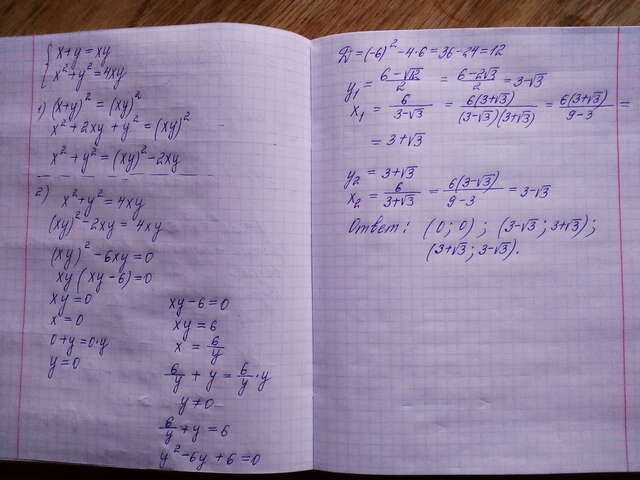 { x+y=xy
x²+y²=4xy
1) (x+y)²=(xy)²
x²+2xy+y²=(xy)²
x²+y²=(xy)²-2xy
2) x²+y²=4xy
(xy)²-2xy=4xy
(xy)²-6xy=0
xy(xy-6)=0
xy=0
x=0
0+y=0·y
y=0
xy-6=0
xy=6
x=6/y
6/y+y=6/y·y
y≠0
6/y+y=6
y²-6y+6=0
D=(-6)²-4·6=36-24=12
y₁=(6-√12)/2=(6-2√3)/2=3-√3
x₁=6/(3-√3)=6(3+√3)/((3-√3)(3+√3))=6(3+√3)/(9-3)=
=3+√3
y₂=3+√3
x₂=6/(3+√3)=6(3-√3)/(9-3)=3-√3
Ответ: (0;0); (3-√3;3+√3);
(3+√3;3-√3).